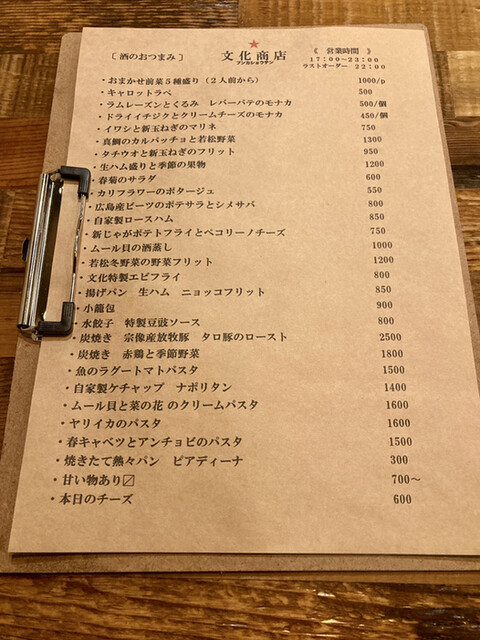 〔 酒のおつまみ 〕
文化商店
ブンカショウテン
《 営業時間 》
17:00~23:00
ラストオーダー 22:00
・おまかせ前菜5種盛り(2人前から) 1000/p
・キャロットラペ 500
・ラムレーズンとくるみ レバーパテのモナカ 500/個
・ドライイチジクとクリームチーズのモナカ 450/個
・イワシと新玉ねぎのマリネ 750
・真鯛のカルパッチョと若松野菜 1300
・タチウオと新玉ねぎのフリット 950
・生ハム盛りと季節の果物 1200
・春菊のサラダ 600
・カリフラワーのポタージュ 550
・広島産ビーツのポテサラとシメサバ 800
・自家製ロースハム 850
・新じゃがポテトフライとペコリーノチーズ 750
・ムール貝の酒蒸し 1000
・若松冬野菜の野菜フリット 1200
・文化特製エビフライ 800
・揚げパン 生ハム ニョッコフリット 850
・小籠包 900
・水餃子 特製豆豉ソース 800
・炭焼き 宗像産放牧豚 タロ豚のロースト 2500
・炭焼き 赤鶏と季節野菜 1800
・魚のラグートマトパスタ 1500
・自家製ケチャップ ナポリタン 1400
・ムール貝と菜の花 のクリームパスタ 1600
・ヤリイカのパスタ 1600
・春キャベツとアンチョビのパスタ 1500
・焼きたて熱々パン ピアディーナ 300
・甘い物あり〼 700~
・本日のチーズ 600